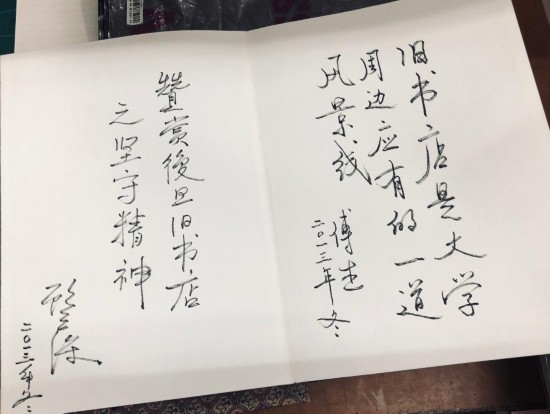 旧书店是大学
周边应有的一道
风景线
傅杰
二〇一三年冬
贊赏復旦旧书店
之坚守精神
二〇一三年冬